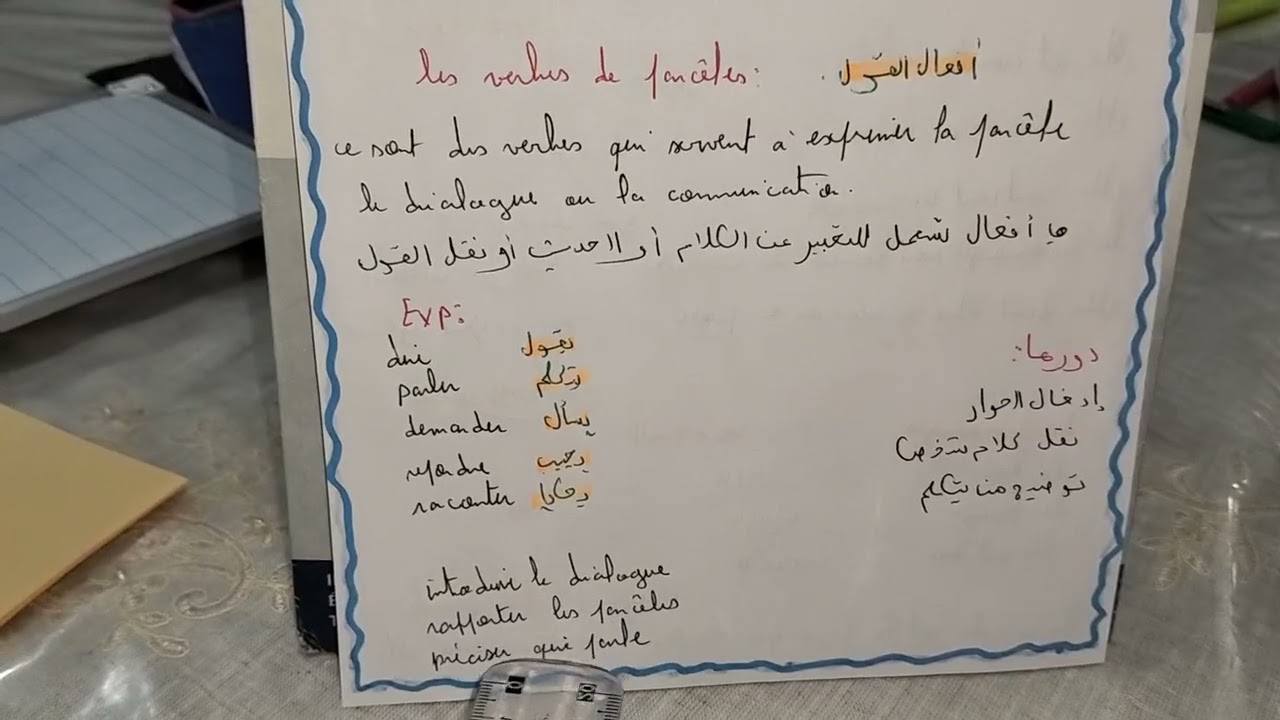 les verbes de parcêles: أفعال القول.
ce sont des verbes qui servent à exprimer la parcêle
le dialaogue ou la communication.
هيا أفعال تشمل للتعبير عن الكلام أو الاحديث أو نقل القول
Exp:
dire يقول
parler يتكلم
demander يسأل
répondre يجيب
raconter يحكي
دورها:
إدخال الحوار
نقل كلام شخص
توضيح من يتكلم
introduire le dialaogue
rapporter les parcêles
préciser qui parle